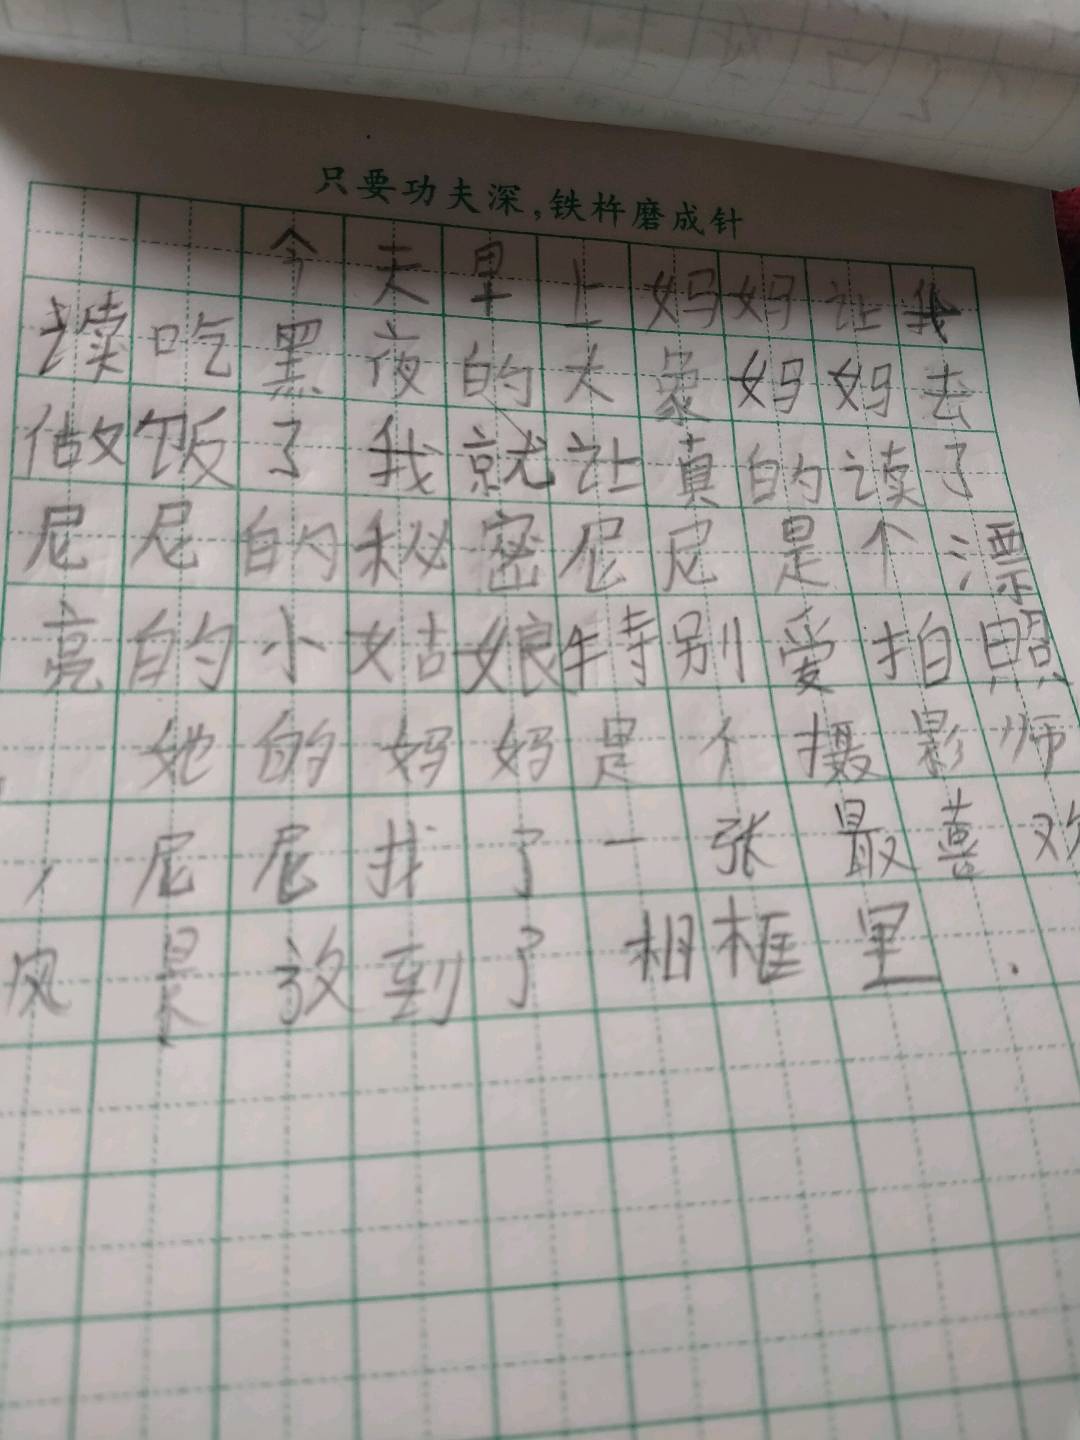 只要功夫深,铁杵磨成针
今天早上妈妈让我
读吃黑夜的大象妈妈去
做饭了我就让真的读了
尼尼的秘密尼尼是个漂
亮的小姑娘特别爱拍照
她的妈妈是个摄影师
,尼尼找了一张最喜欢
风景放到了相框里.